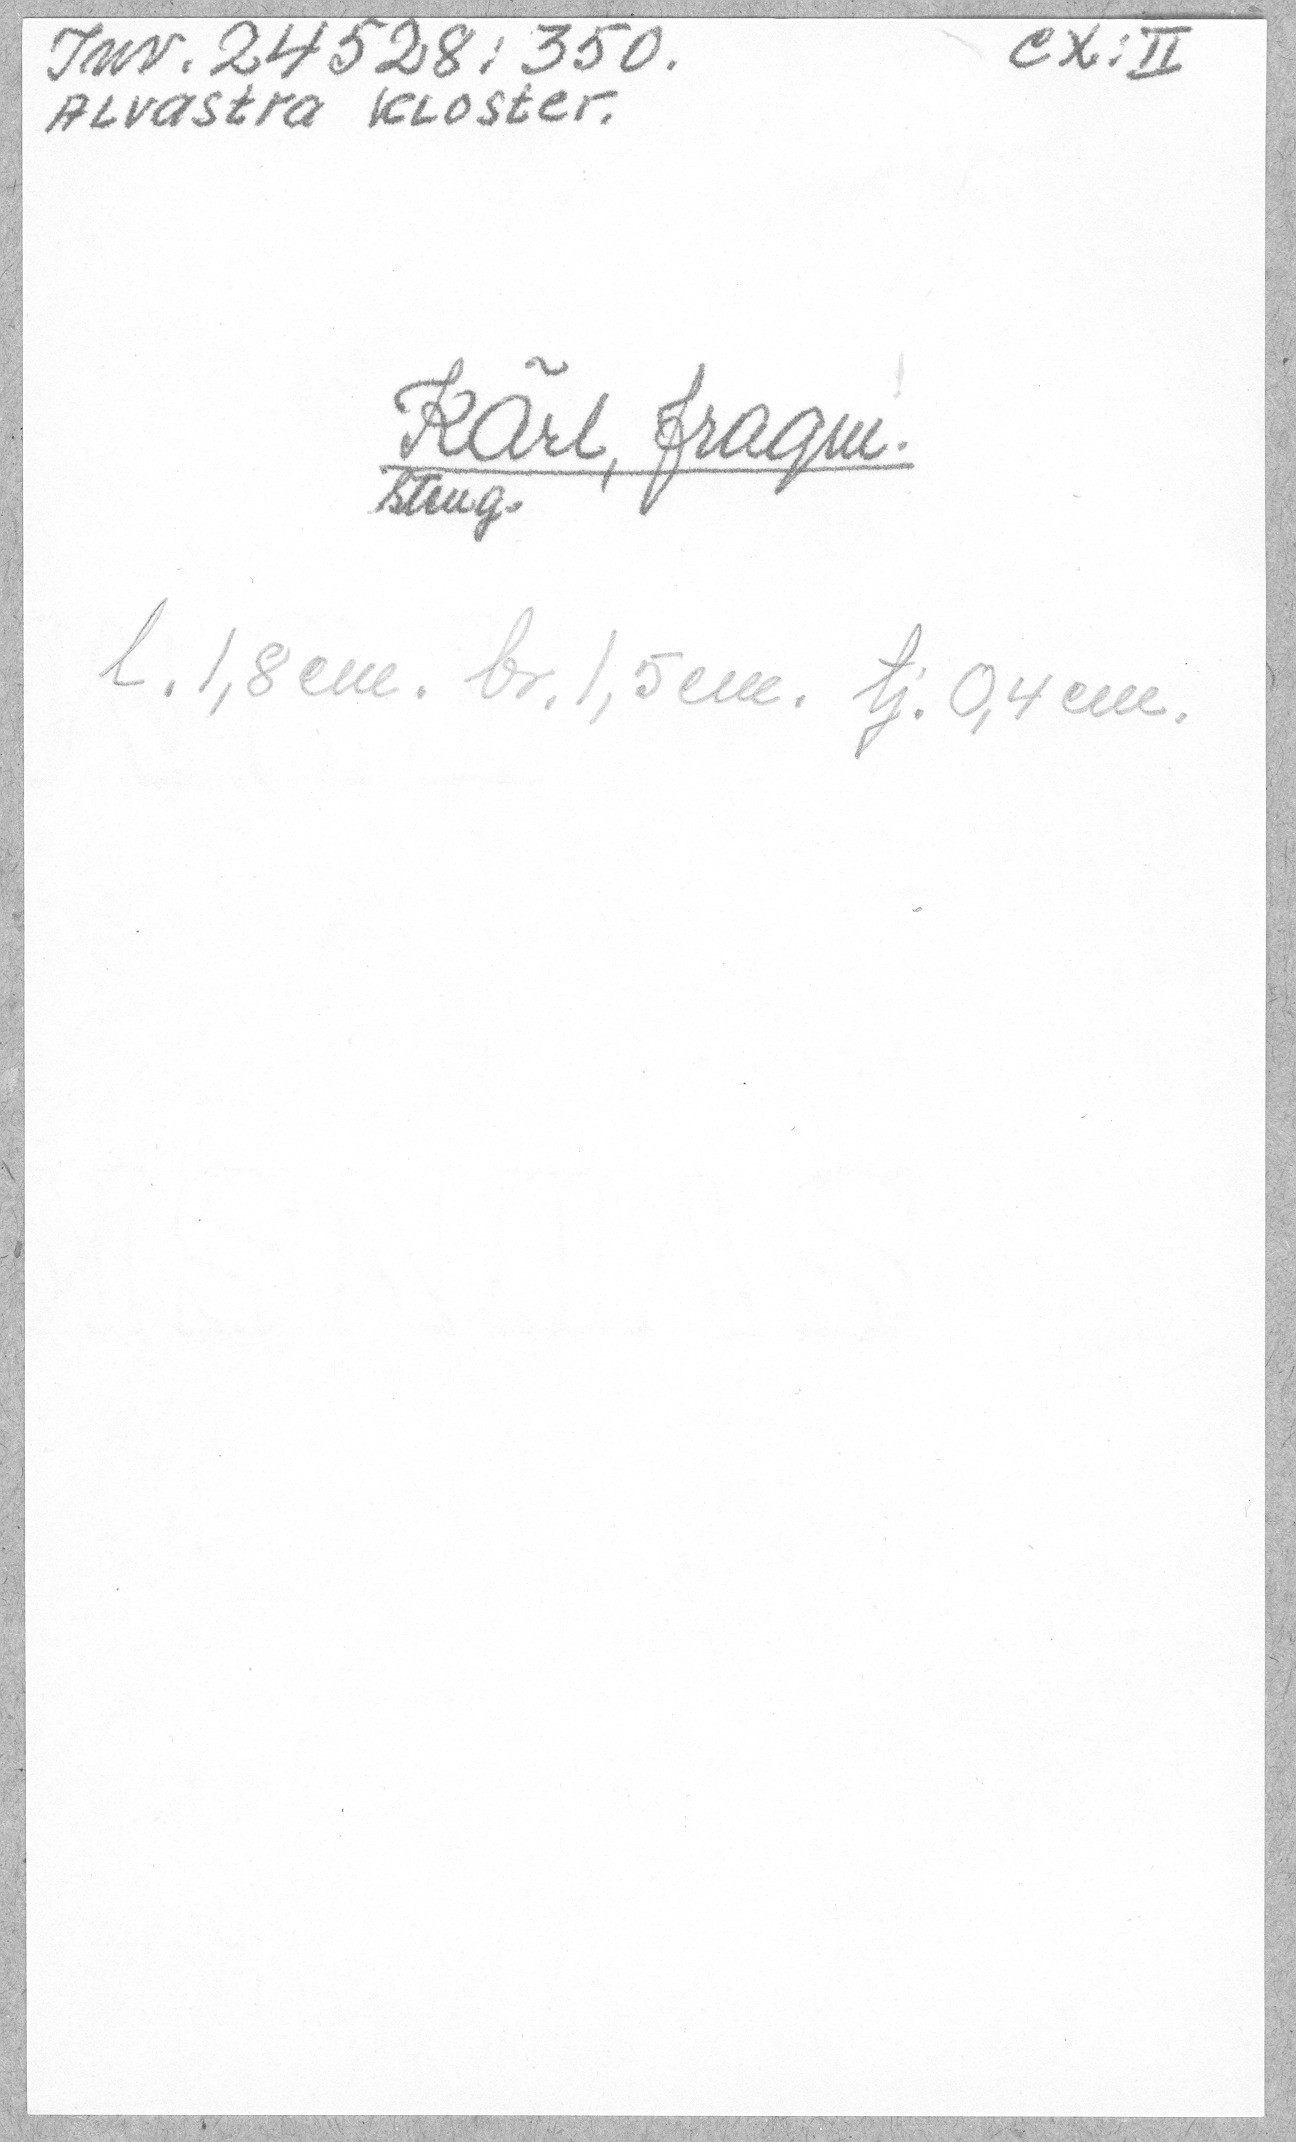 Inv. 24528:350. CX:II
Alvastra kloster.
Kärl, fragm.
Steng.
l. 1,8 cm. br. 1,5 cm. tj. 0,4 cm.